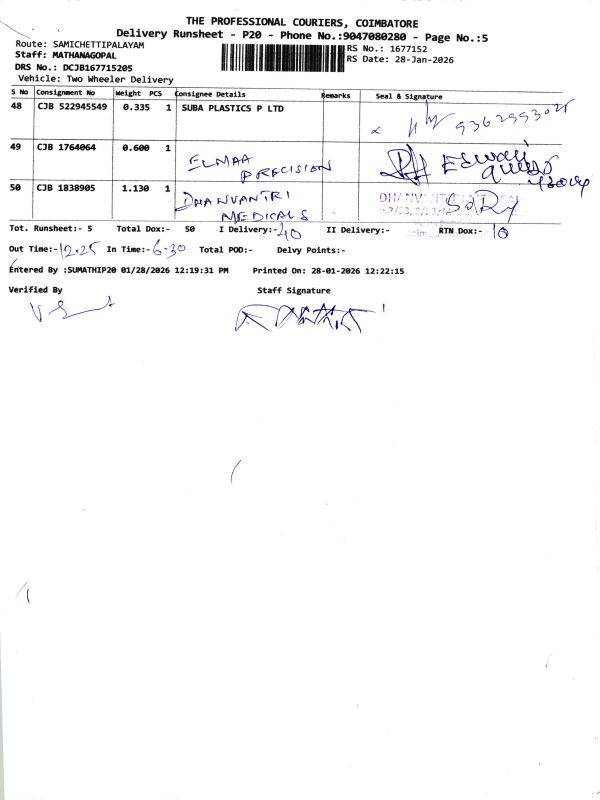 THE PROFESSIONAL COURIERS, COIMBATORE
Delivery Runsheet - P20 - Phone No.:9047080280 - Page No.:5
Route: SAMICHETTIPALAYAM
Staff: MATHANAGOPAL
RS No.: 1677152
DRS No.: DCJB167715205
RS Date: 28-Jan-2026
Vehicle: Two Wheeler Delivery
S No Consignment No Weight PCS Consignee Details Remarks Seal & Signature
48 CJB 522945549 0.335 1 SUBA PLASTICS P LTD
49 CJB 1764064 0.600 1 ELMAA PRECISION
50 CJB 1838905 1.130 1 DHANVANTRI MEDICALS
Tot. Runsheet:- 5 Total Dox:- 50 I Delivery:- 40 II Delivery:- RTN Dox:- 10
Out Time:- 12-25 In Time:- 6-30 Total POD:- Delvy Points:-
Entered By :SUMATHIP20 01/28/2026 12:19:31 PM Printed On: 28-01-2026 12:22:15
Verified By Staff Signature